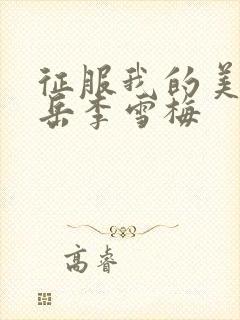 征服我的美
岳李雪梅
高睿